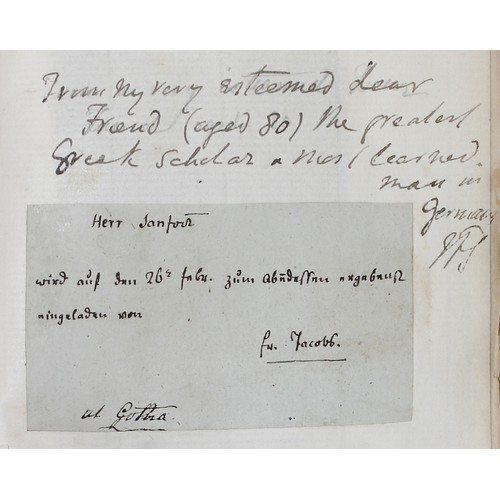 From my very esteemed dear
Friend (aged 80) the greatest
Greek scholar & most learned
man in
Germany
Herr Sanfort
wird auf den 26ᵗ Febr. zum Abendessen ergebenst
eingeladen von
Fr. Jacobs.
at Gotha